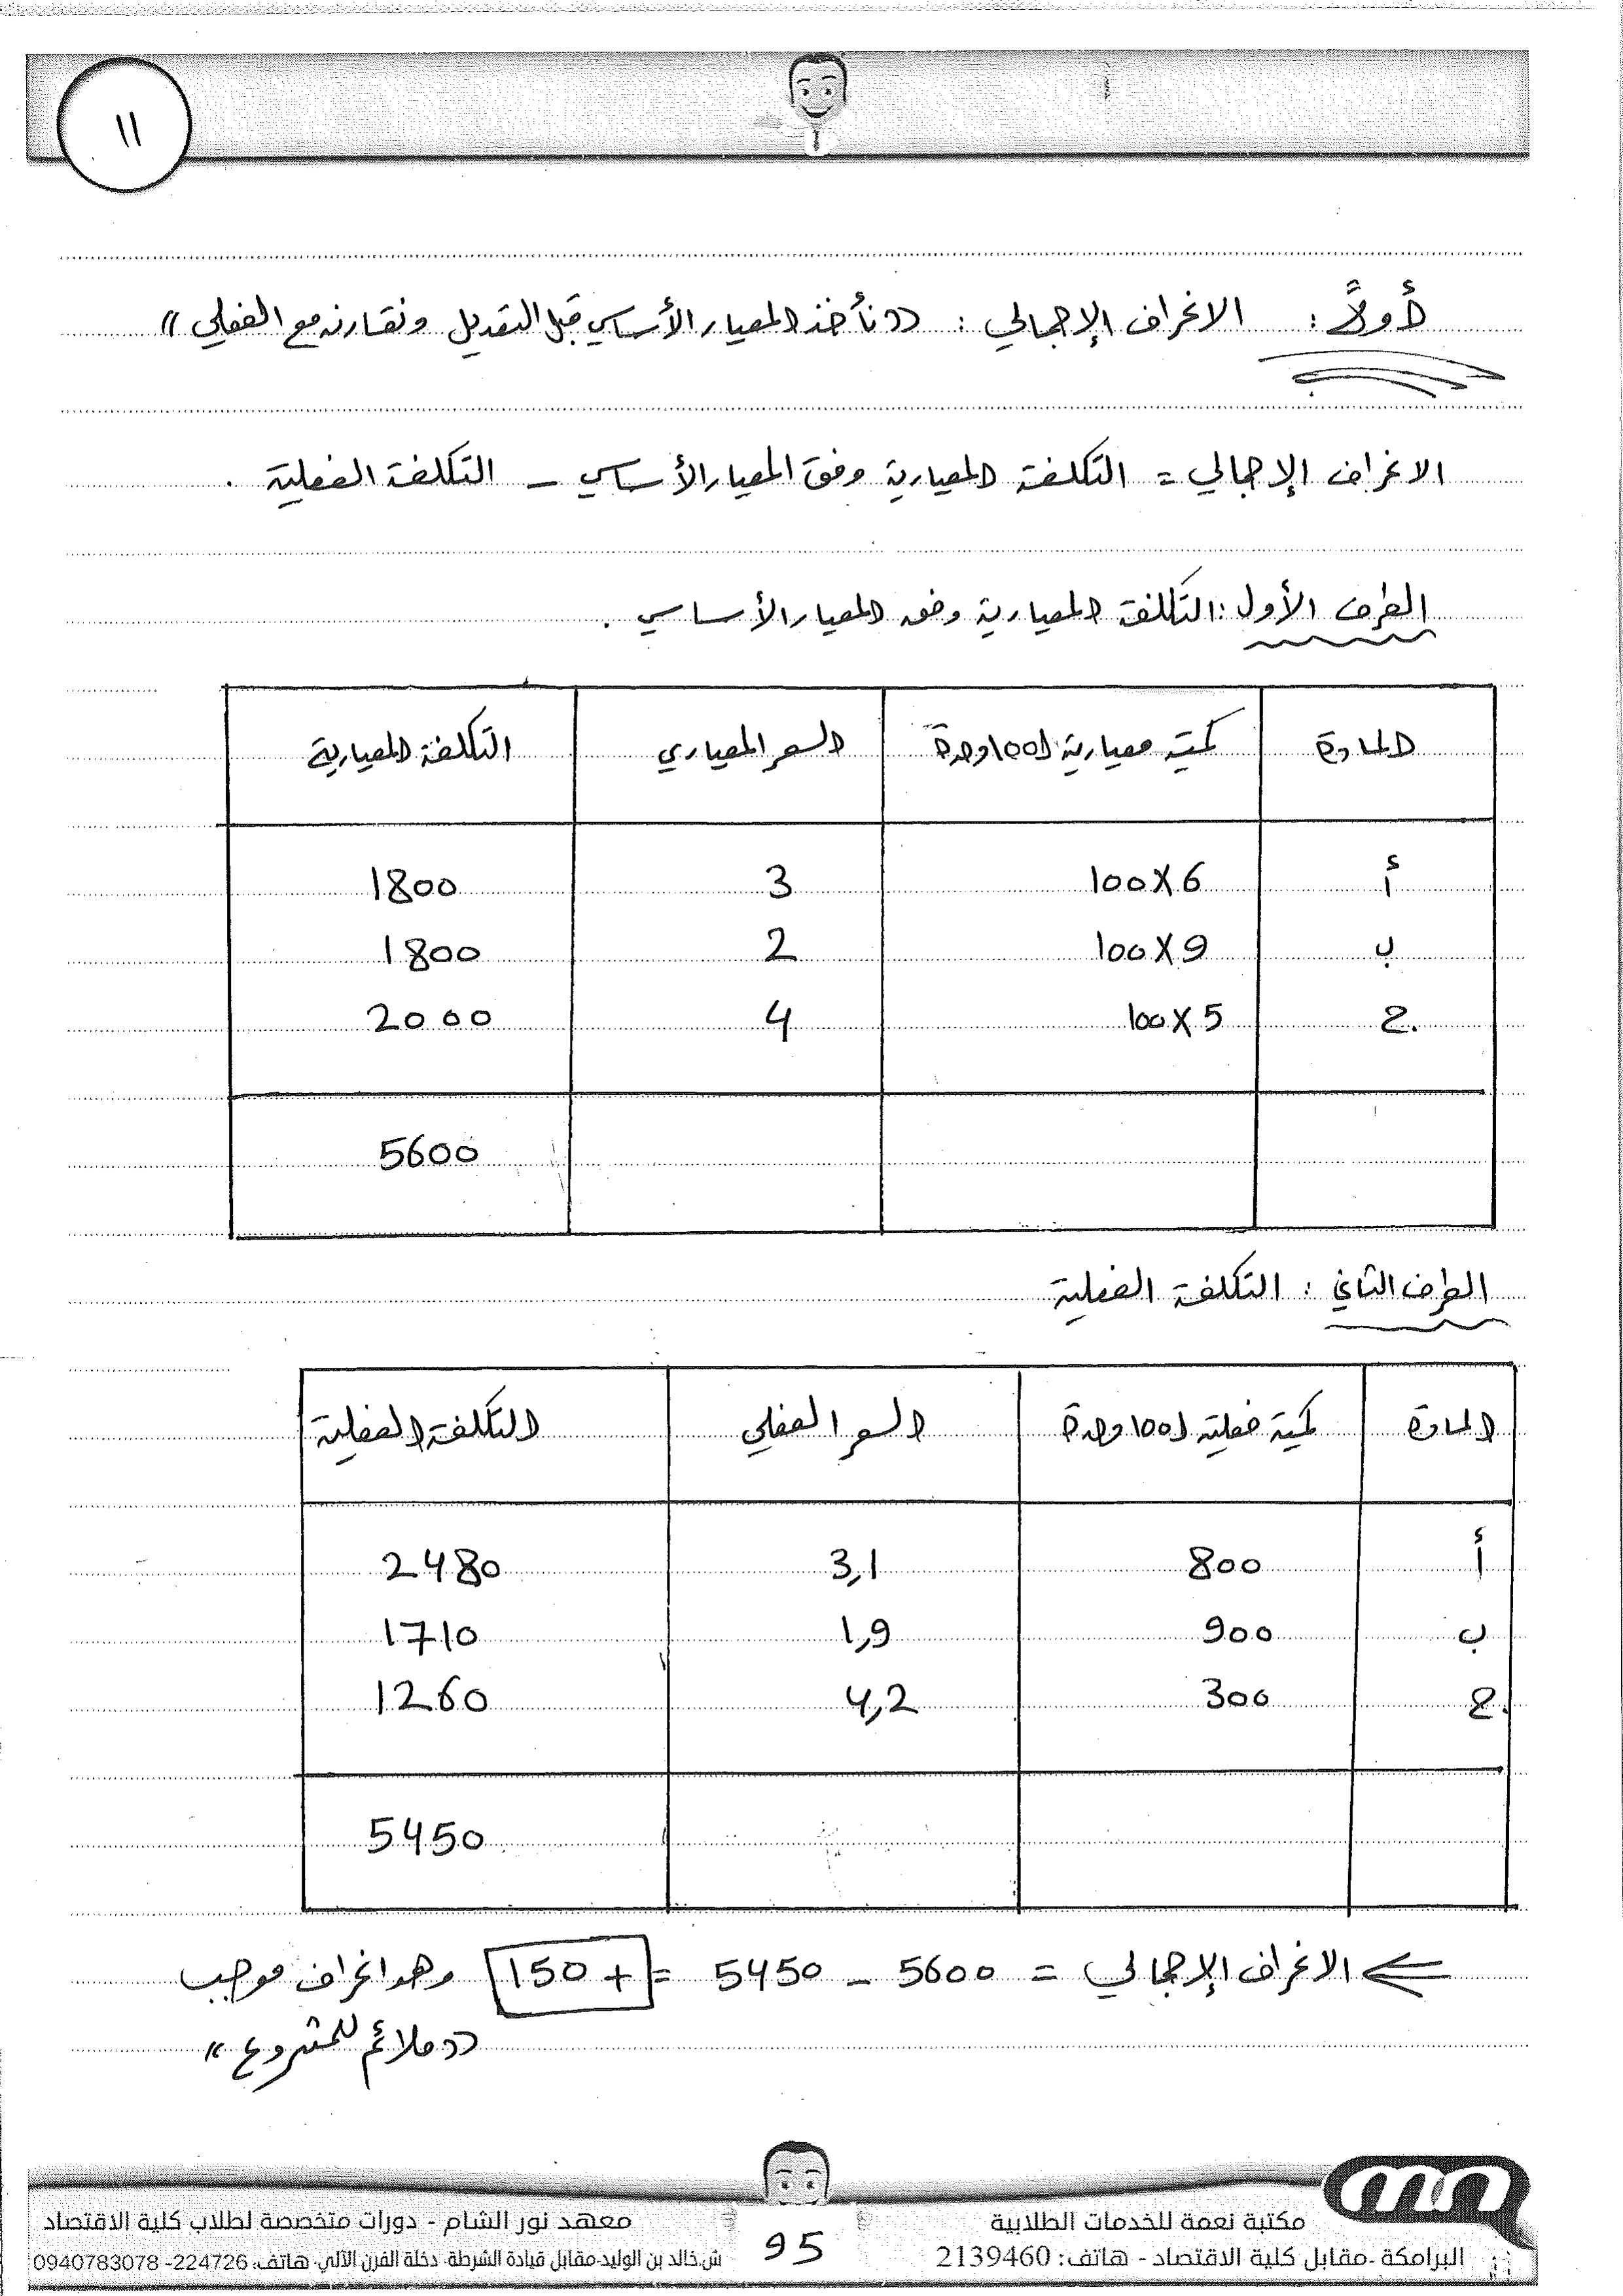 ١١
أولاً : الانحراف الإجمالي : (( نأخذ المعيار الأساسي قبل التعديل ونقارنه مع الفعلي ))
الانحراف الإجمالي = التكلفة المعيارية وفق المعيار الأساسي - التكلفة الفعلية .
الطرف الأول : التكلفة المعيارية وفق المعيار الأساسي .
المادة كمية معيارية لـ 100 وحدة السعر المعياري التكلفة المعيارية
أ 100X6 3 1800
ب 100X9 2 1800
ج 100X5 4 2000
5600
الطرف الثاني : التكلفة الفعلية
المادة كمية فعلية لـ 100 وحدة السعر الفعلي التكلفة الفعلية
أ 800 3,1 2480
ب 900 1,9 1710
ج 300 4,2 1260
5450
الانحراف الإجمالي = 5600 - 5450 = +150 وهو انحراف موجب
(( ملائم للمشروع ))
مكتبة نعمة للخدمات الطلابية
البرامكة -مقابل كلية الاقتصاد - هاتف: 2139460
95
معهد نور الشام - دورات متخصصة لطلاب كلية الاقتصاد
ش.خالد بن الوليد-مقابل قيادة الشرطة- دخلة الفرن الآلي- هاتف: 224726- 0940783078